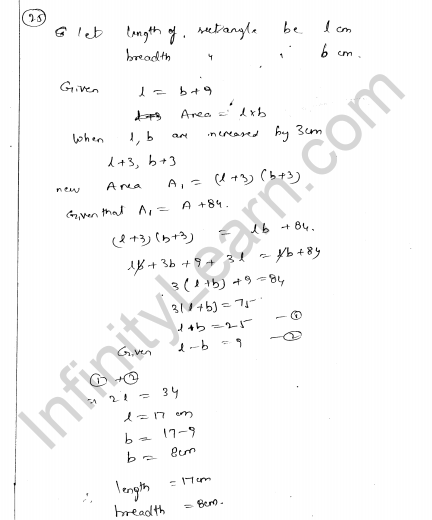 25
let length of rectangle be l cm
breadth " " b cm.
Given l = b+9
Area = l×b
When l, b are increased by 3cm
l+3, b+3
new Area A₁ = (l+3)(b+3)
Given that A₁ = A +84.
(l+3)(b+3) = lb +84.
lb + 3b + 9 + 3l = lb + 84
3(l+b) + 9 = 84
3(l+b) = 75
l+b = 25 —①
Given l-b = 9 —②
① + ②
⇒ 2l = 34
l = 17 cm
b = 17-9
b = 8cm
∴ length = 17cm
breadth = 8cm.
InfinityLearn.com